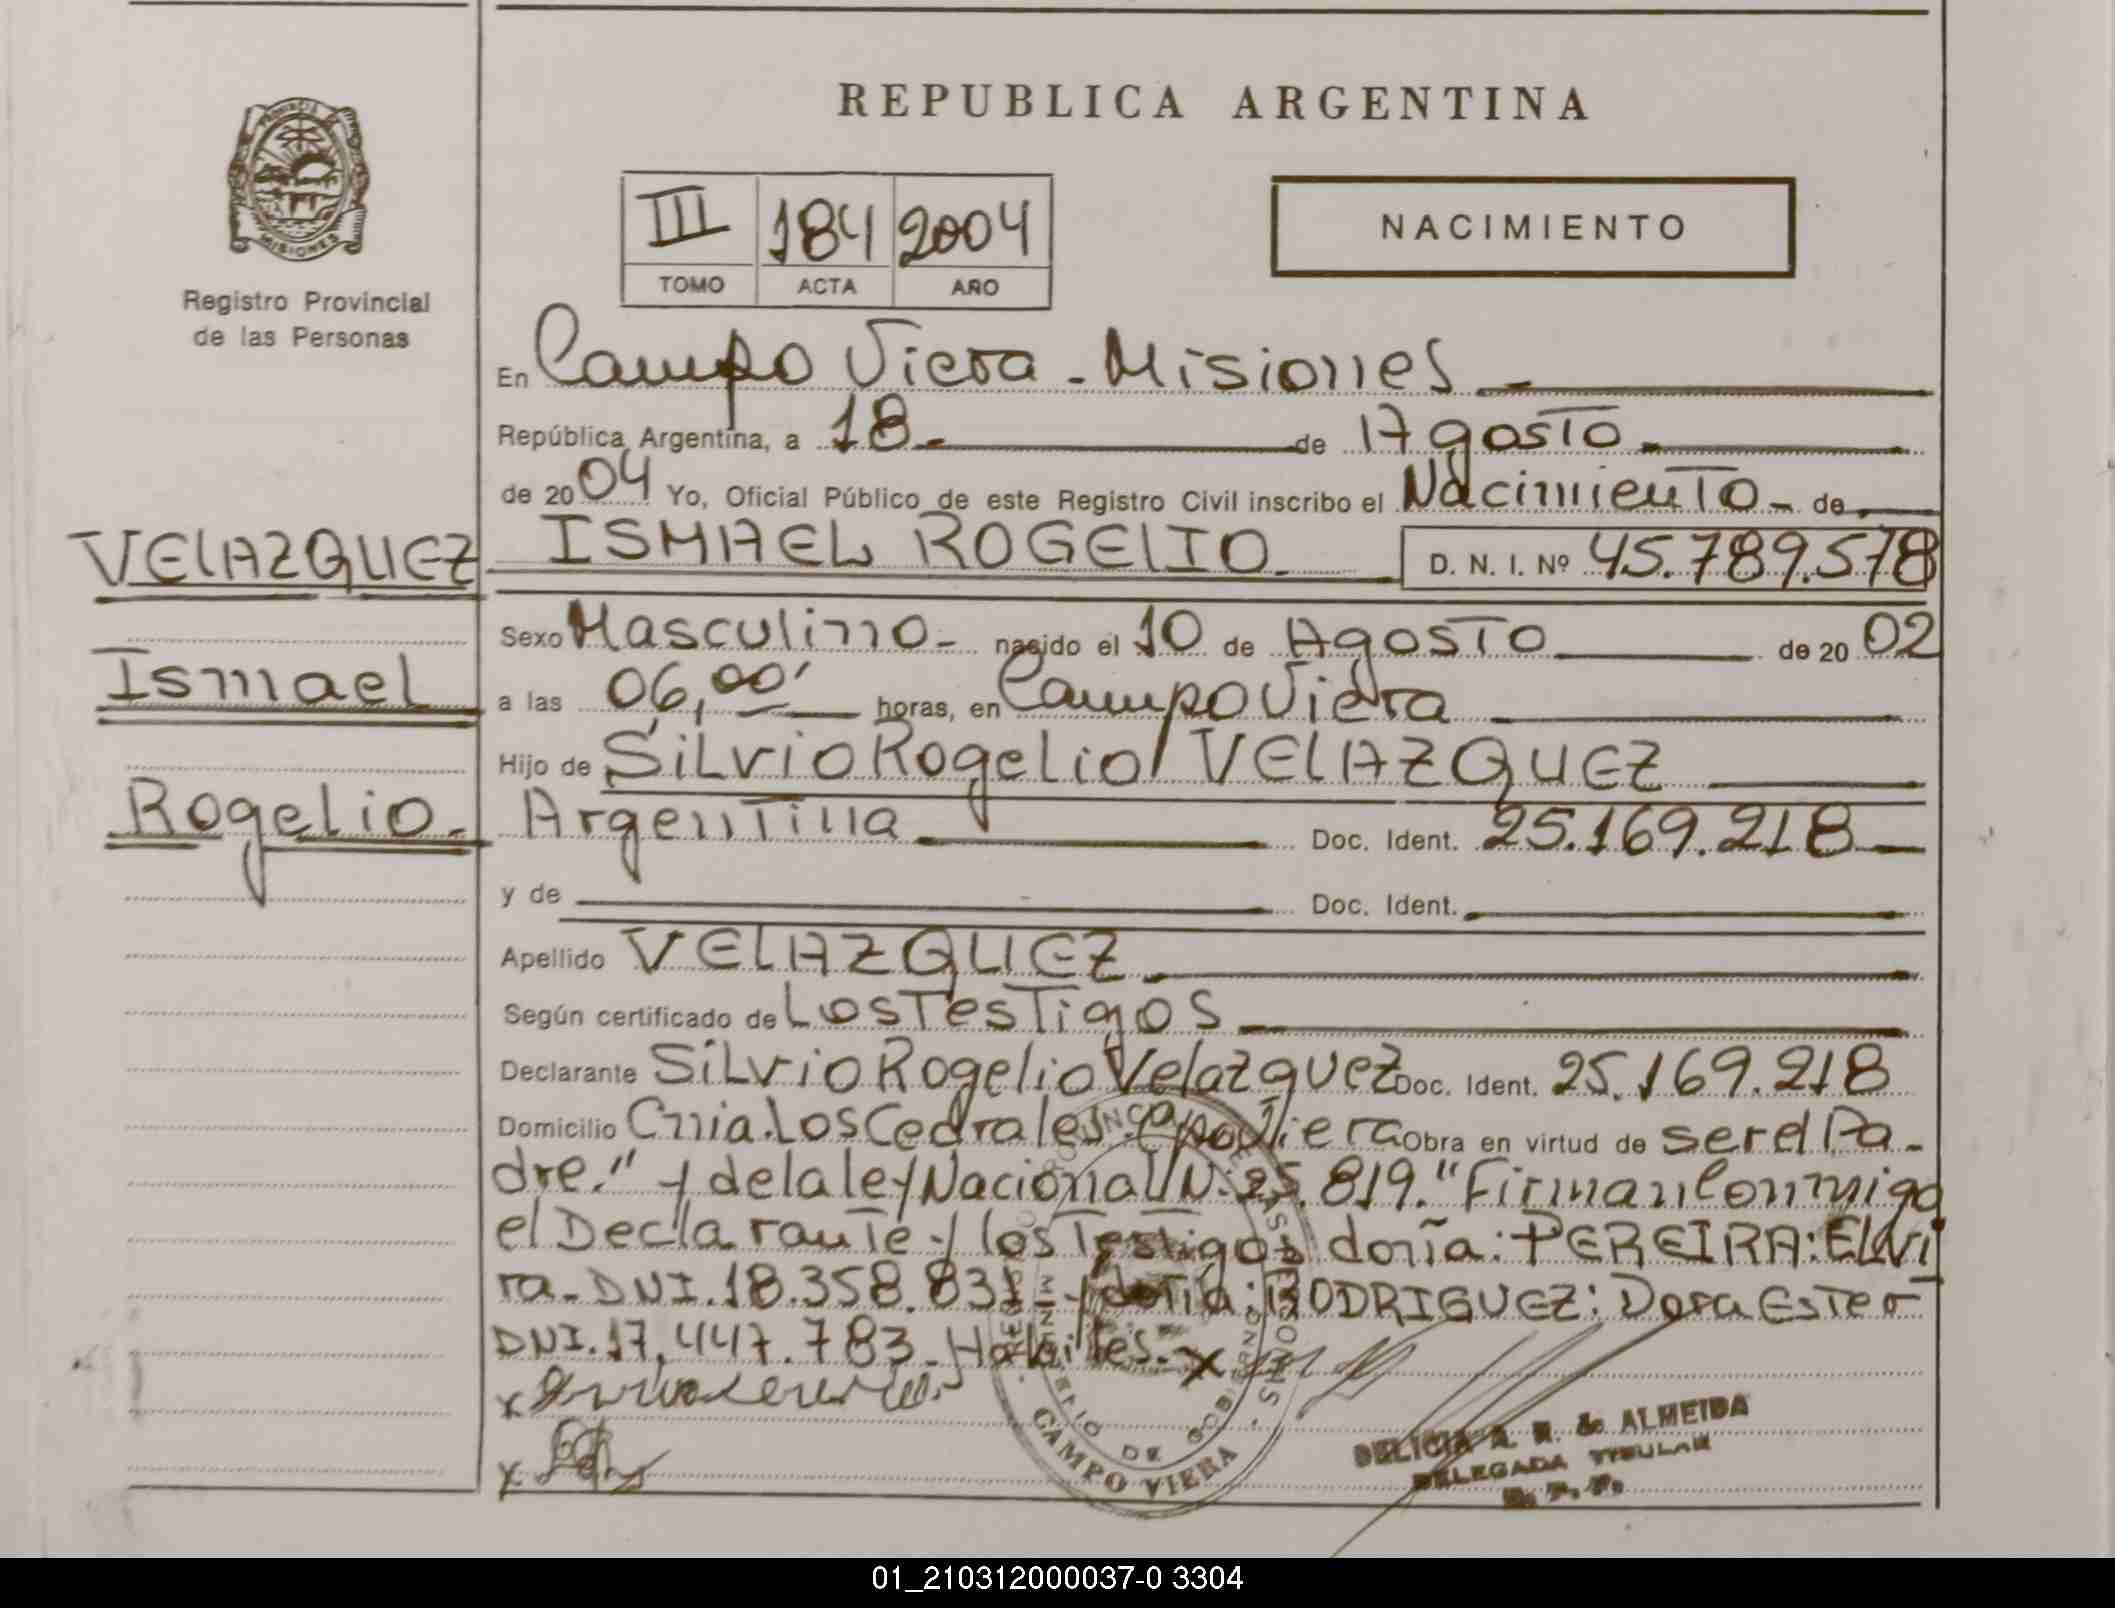 REPUBLICA ARGENTINA
PROVINCIA DE
MISIONES
Registro Provincial
de las Personas
III 184 2004
TOMO ACTA AÑO
NACIMIENTO
En Campo Viera - Misiones
República Argentina, a 18 de Agosto
de 2004 Yo, Oficial Público de este Registro Civil inscribo el Nacimiento de
VELAZQUEZ ISMAEL ROGELIO D. N. I. Nº 45.789.578
Sexo Masculino nacido el 10 de Agosto de 2002
Ismael a las 06,00' horas, en Campo Viera
Hijo de Silvio Rogelio VELAZQUEZ
Rogelio Argentina Doc. Ident. 25.169.218
y de Doc. Ident.
Apellido VELAZQUEZ
Según certificado de Los Testigos
Declarante Silvio Rogelio Velazquez Doc. Ident. 25.169.218
Domicilio Cnia. Los Cedrales Cpo Viera Obra en virtud de ser el Pa-
dre." y de la ley Nacional N. 25.819." Firman Conmigo
el Declarante y los Testigos doña: PEREIRA: Elvi
ra - DNI. 18.358.831 - y doña: RODRIGUEZ: Dora Ester
DNI. 17.447.783 - Habiles. x
x
x
MINISTERIO DE GOBIERNO
CAMPO VIERA
DELICIA A. R. de ALMEIDA
DELEGADA TITULAR
R. P. P.
01_210312000037-0 3304